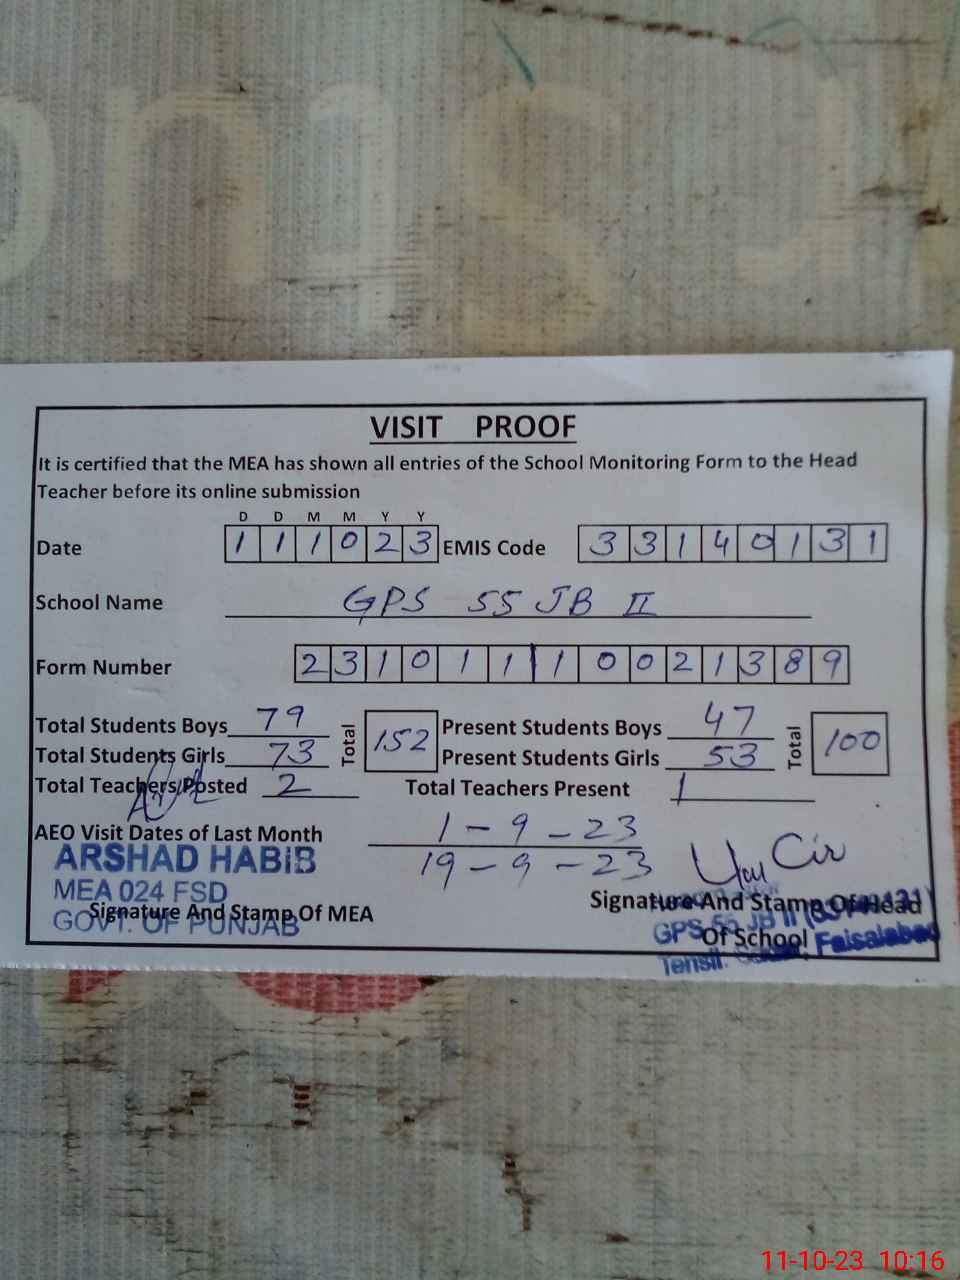 VISIT PROOF
It is certified that the MEA has shown all entries of the School Monitoring Form to the Head
Teacher before its online submission
D D M M Y Y
Date 1 1 1 0 2 3 EMIS Code 3 3 1 4 0 1 3 1
School Name GPS 55 JB II
Form Number 2 3 1 0 1 1 1 0 0 2 1 3 8 9
Total Students Boys 79 Total 152 Present Students Boys 47 Total 100
Total Students Girls 73 Present Students Girls 53
Total Teachers Posted 2 Total Teachers Present 1
AEO Visit Dates of Last Month 1-9-23
19-9-23
ARSHAD HABIB
MEA 024 FSD
GOVT. OF PUNJAB
Signature And Stamp Of MEA
Signature And Stamp Of Head
Of School
GPS 55 JB II
Faisalabad
Tensil:
11-10-23 10:16